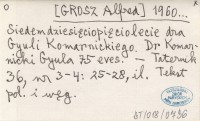 [GROSZ Alfred] 1960...
Siedemdziesięciopięciolecie dra
Gyuli Komarnickiego. Dr Komar-
nicki Gyula 75 éves. – Taternik
36, nro 3-4: 25-28, il. Tekst
pol. i węg.
BT/018/0496